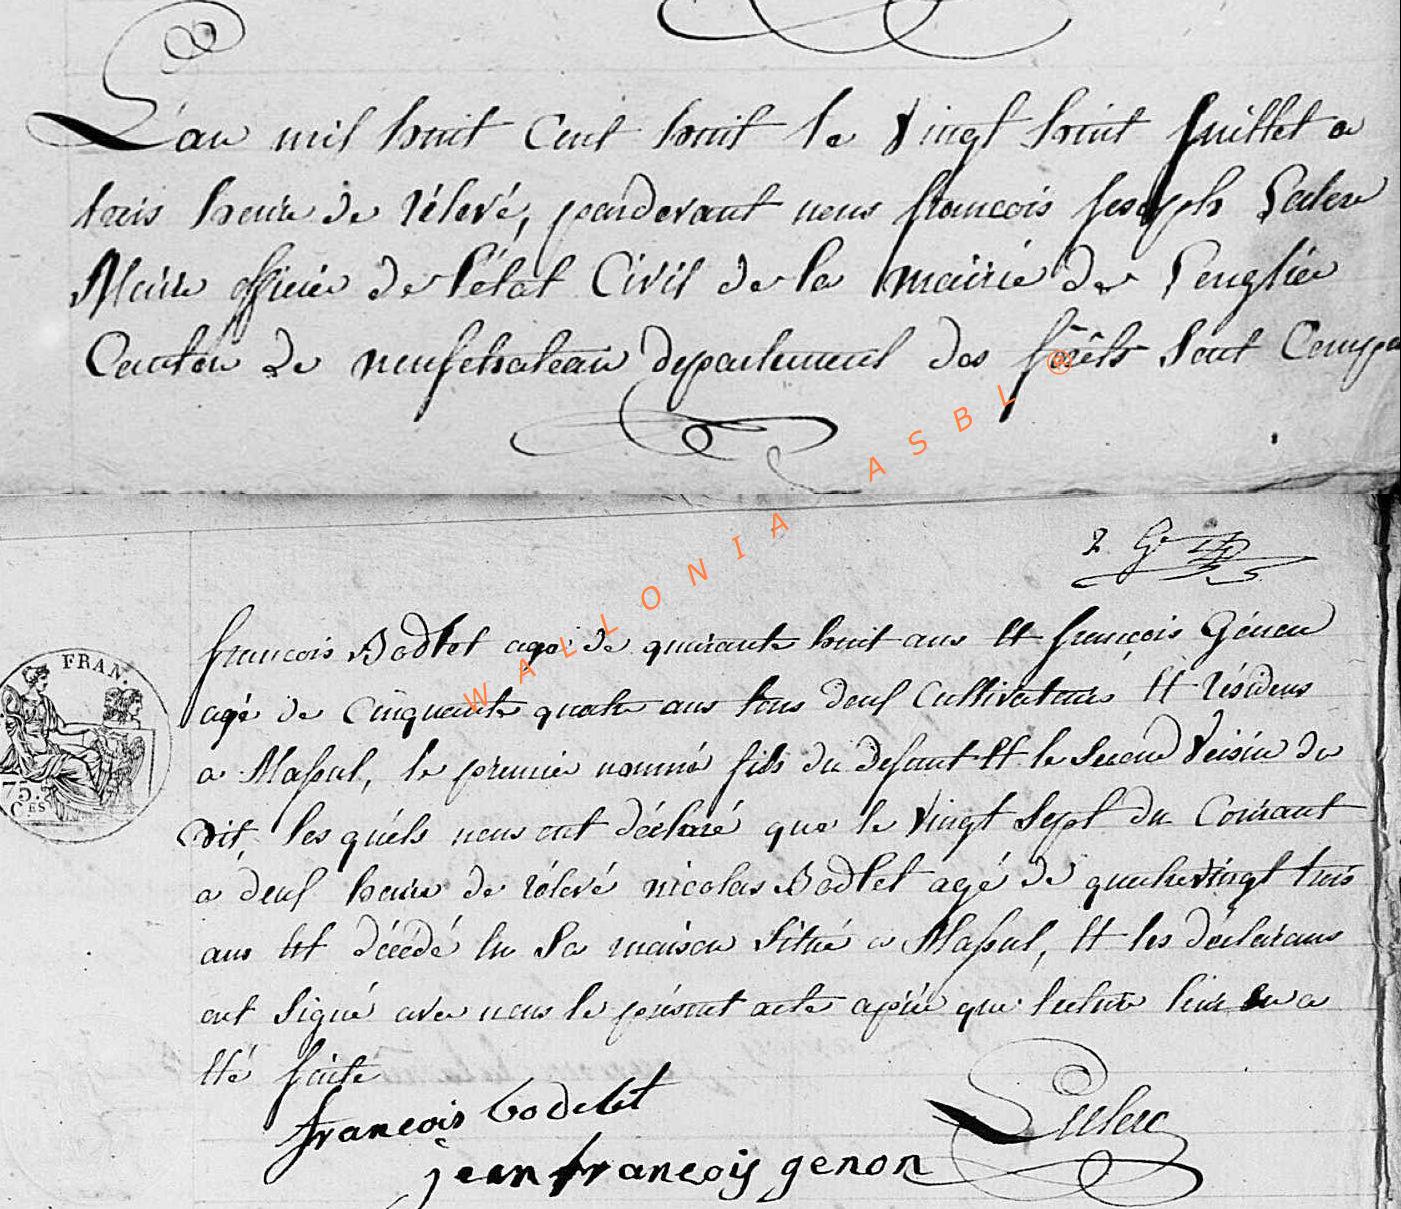 L'an mil huit Cent huit le Vingt huit Juillet a
trois heure de rélevé, pardevant nous françois Joseph Leclerc
Maire officier de l'état Civil de la mairie de Longlier
Canton de neufchateau departement des forêts sont Compa
WALLONIA ASBL ®
françois Bodlet agé de quarante huit ans Et françois Génon
agé de Cinquante quatre ans tous deux Cultivateurs Et résidens
a Massul, le premier nommé fils du defunt Et le second Voisin du
dit, les quéls nous ont déclaré que le Vingt Sept du Courant
a deux heure de rélevé nicolas Bodlet agé de quatrevingt trois
ans Est décédé En Sa maison Situé a Massul, Et les déclarans
ont Signé avec nous le présent acte après que lecture leur En a
Eté faite
françois bodelet
Leclerc
jean françois genon
FRAN.
75.
CES